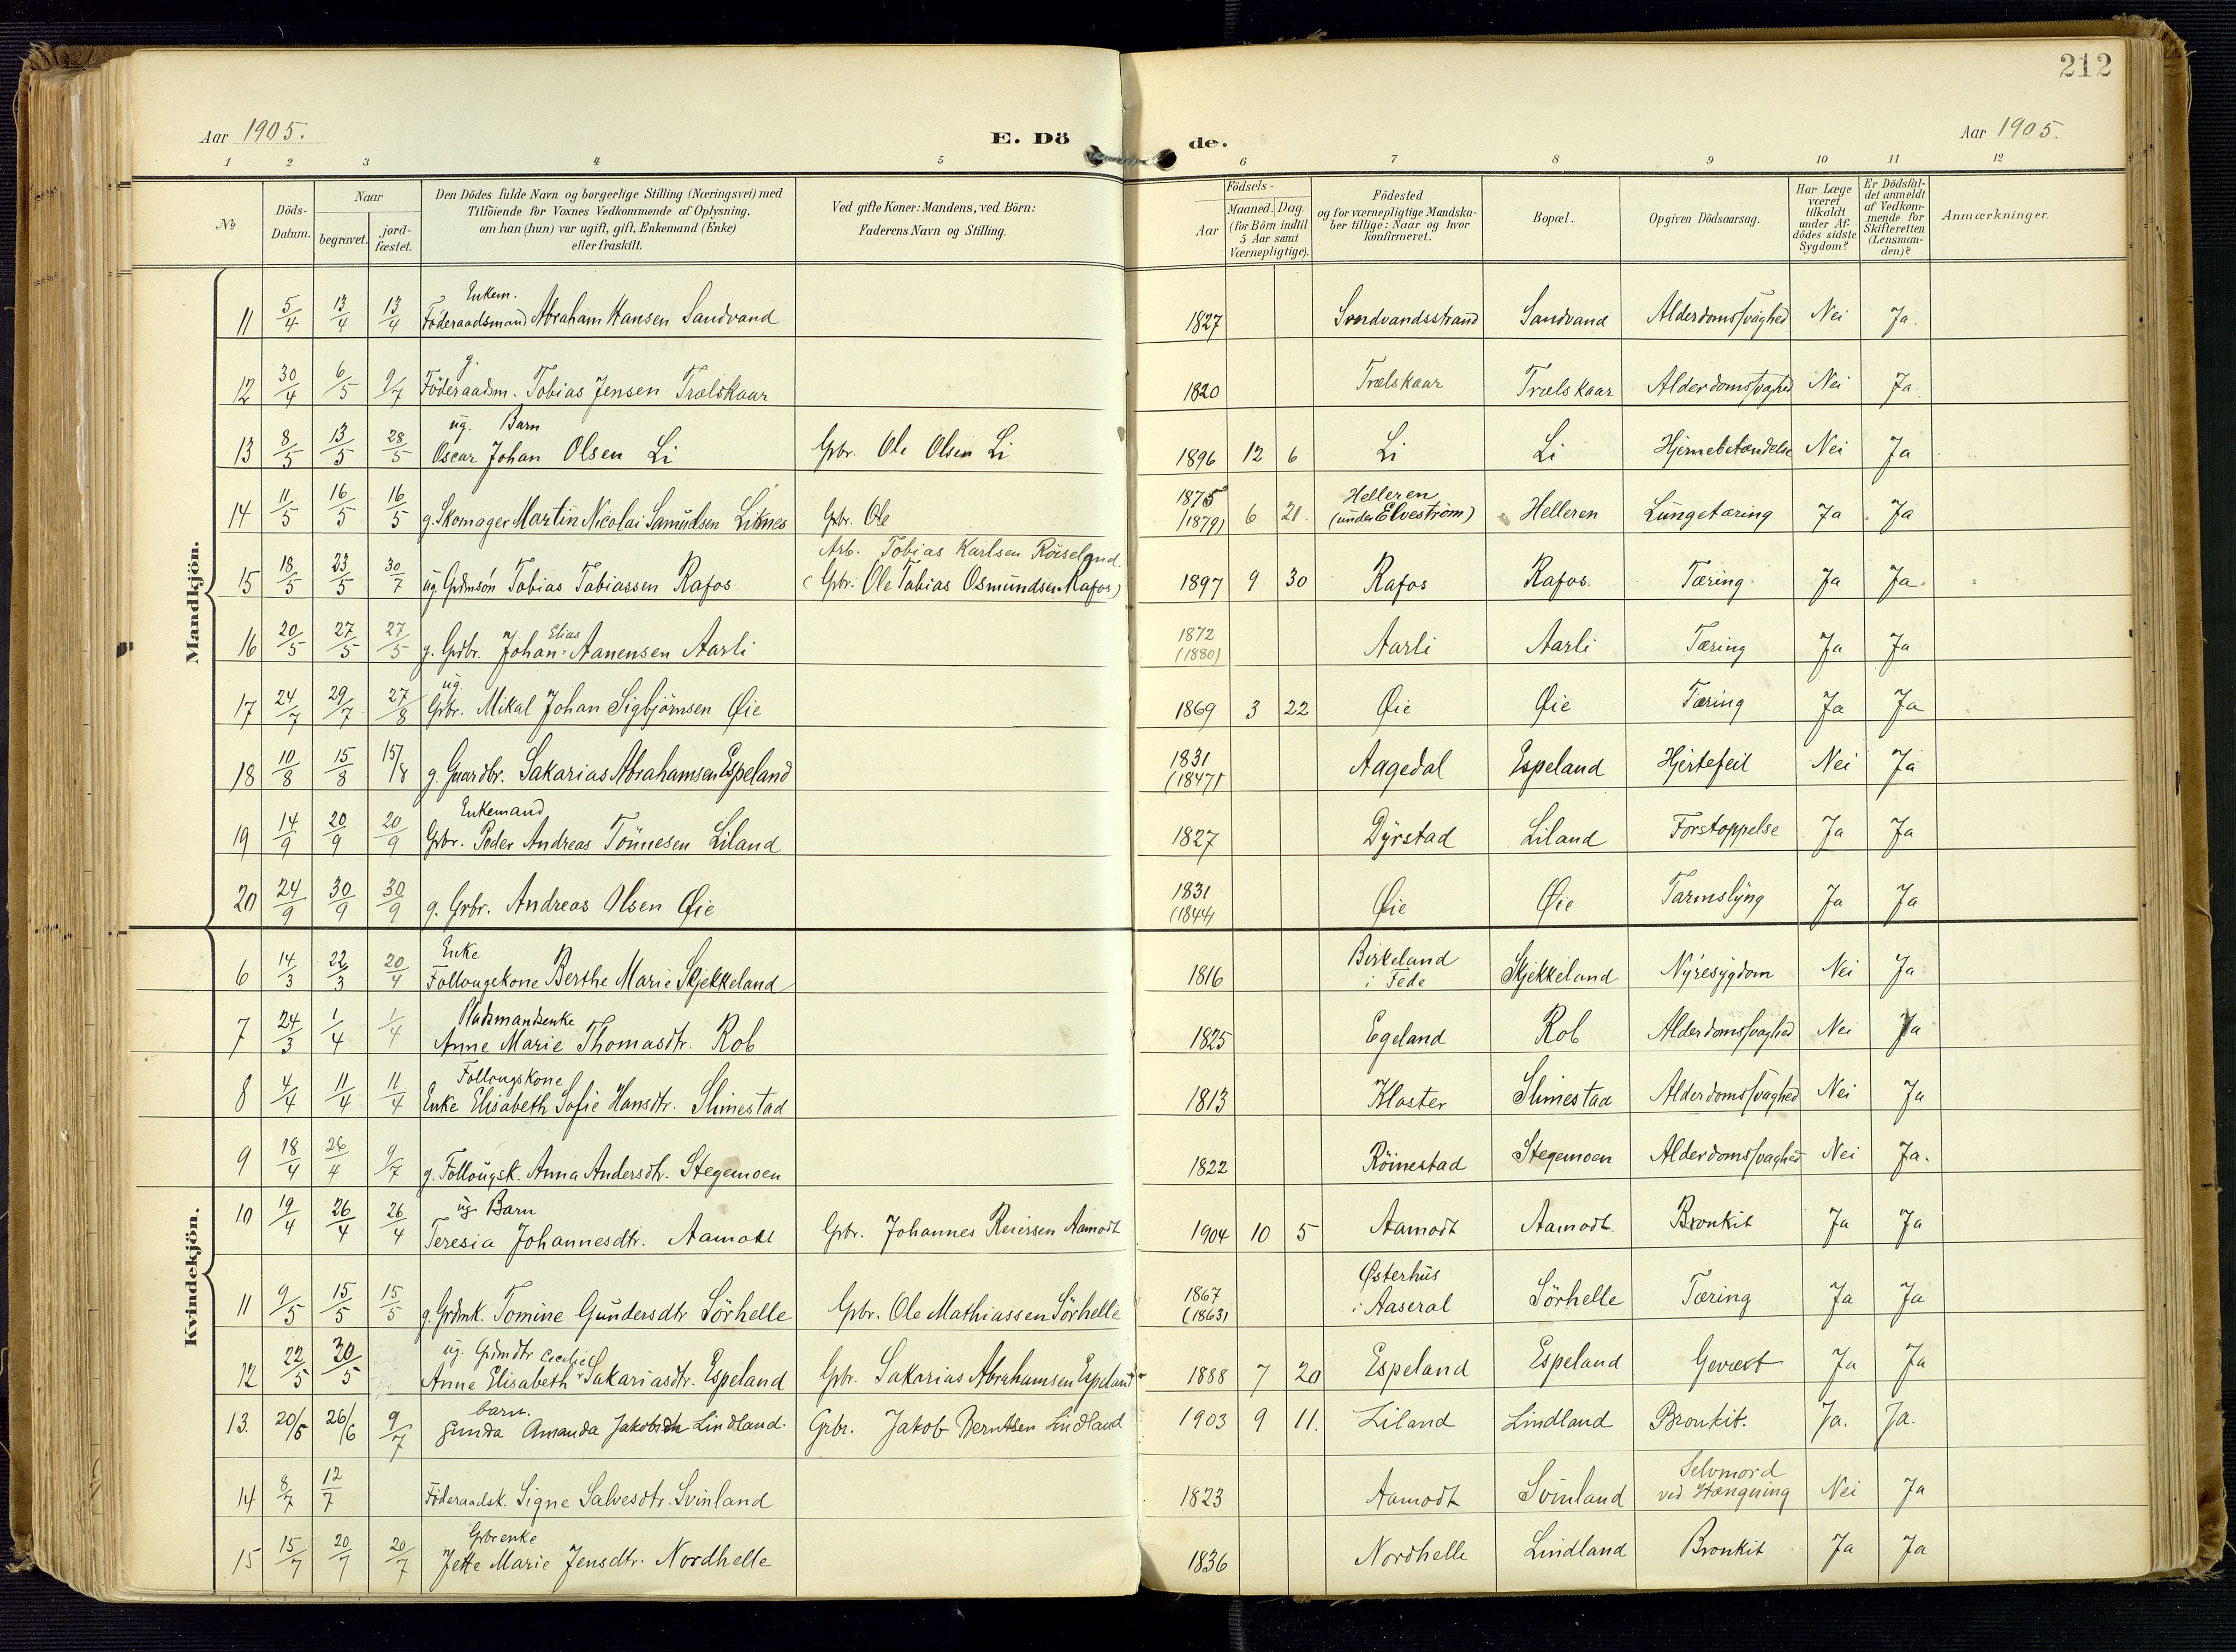 212
Aar 1905.
E. Dö de.
Aar 1905.
1 2 3 4 5 6 7 8 9 10 11 12
No
Döds-Datum.
Naar
begravet.
jord-fæstet.
Den Dödes fulde Navn og borgerlige Stilling (Næringsvei) med
Tilföiende for Voxnes Vedkommende af Oplysning,
om han (hun) var ugift, gift, Enkemand (Enke)
eller fraskilt.
Ved gifte Koner: Mandens, ved Börn:
Faderens Navn og Stilling.
Födsels-
Aar
Maaned. Dag.
(for Börn indtil
5 Aar samt
Værnepligtige).
Födested
og for værnepligtige Mandska-
ber tillige: Naar og hvor
konfirmeret.
Bopæl.
Opgiven Dödsaarsag.
Har Læge
været
tilkaldt
under Af-
dödes sidste
Sygdom?
Er Dödsfal-
det anmeldt
af Vedkom-
mende for
Skifteretten
(Lensman-
den)?
Anmærkninger.
Mandkjön.
Enkem.
11 5/4 13/4 13/4 Föderaadsmand Abraham Hansen Sandvand 1827 Sandvandsstrand Sandvand Alderdomssvaghed Nei Ja.
g.
12 30/4 6/5 9/7 Föderaadsm. Tobias Jensen Trælskaar 1820 Trælskaar Trælskaar Alderdomssvaghed Nei Ja.
ug. Barn
13 8/5 13/5 28/5 Oscar Johan Olsen Li Gbr. Ole Olsen Li 1896 12 6 Li Li Hjernebetændelse Nei Ja
14 11/5 16/5 16/5 g. Skomager Martin Nicolai Samuelsen Liknes Gbr. Ole 1875 (1879) 6 21. Helleren (under Elvestrøm) Helleren Lungetæring Ja Ja
Arb. Tobias Karlsen Röiseland.
15 18/5 23/5 30/7 ug. Grdmsön Tobias Tobiassen Rafos (Gbr. Ole Tobias Osmundsen Rafos) 1897 9 30 Rafos Rafos. Tæring. Ja Ja.
16 20/5 27/5 27/5 g. Grdbr. Johan Elias Aanensen Aarli 1872 (1880) Aarli Aarli Tæring Ja Ja
ug.
17 24/7 29/7 27/8 Gbr. Mikal Johan Sigbjörnsen Øie 1869 3 22 Øie Øie Tæring Ja Ja
18 10/8 15/8 15/8 g. Gaardbr. Sakarias Abrahamsen Espeland 1831 (1847) Aagedal Espeland Hjertefeil Nei Ja
Enkemand
19 14/9 20/9 20/9 Gbr. Peder Andreas Tönnesen Liland 1827 Dyrstad Liland Forstoppelse Ja Ja
20 24/9 30/9 30/9 g. Grbr. Andreas Olsen Øie 1831 (1844) Øie Øie Tarmslyng Ja Ja
Kvindekjön.
Enke
6 14/3 22/3 20/4 Follougekone Berthe Marie Skjekkeland 1816 Birkeland i Fede Skjekkeland Nyresygdom Nei Ja
Pladsmandsenke
7 24/3 1/4 1/4 Anne Marie Thomasdtr. Rob 1825 Egeland Rob Alderdomssvaghed Nei Ja
Follougskone
8 4/4 11/4 11/4 Enke Elisabeth Sofie Hansdtr. Slimestad 1813 Kloster Slimestad Alderdomssvaghed Nei Ja
9 18/4 26/4 9/7 g. Follougsk. Anna Andersdtr. Stegemoen 1822 Röinestad Stegemoen Alderdomssvaghed Nei Ja.
ug. Barn
10 19/4 26/4 26/4 Teresia Johannesdtr. Aamodt Gbr. Johannes Reiersen Aamodt 1904 10 5 Aamodt Aamodt Bronkit Ja Ja
11 9/5 15/5 15/5 g. Grdmk. Tomine Gundersdtr Sörhelle Gbr. Ole Mathiassen Sörhelle 1867 (1863) Østerhus i Aaseral Sörhelle Tæring Ja Ja
ug. Grdmdtr Cecilie
12 22/5 30/5 Anne Elisabeth Sakariasdtr. Espeland Gbr. Sakarias Abrahamsen Espeland 1888 7 20 Espeland Espeland Gevæxt Ja Ja
barn.
13. 20/6 26/6 9/7 Gunda Amanda Jakobsdtr Lindland. Grbr. Jakob Berntsen Lindland 1903 9 11. Liland Lindland Bronkit. Ja. Ja.
14 8/7 12/7 Föderaadsk. Signe Salvesdtr. Svinland 1823 Aamodt Svinland Selvmord ved Hængning Nei Ja
Gbrenke
15 15/7 20/7 20/7 Jette Marie Jensdtr. Nordhelle 1836 Nordhelle Lindland Bronkit Ja Ja